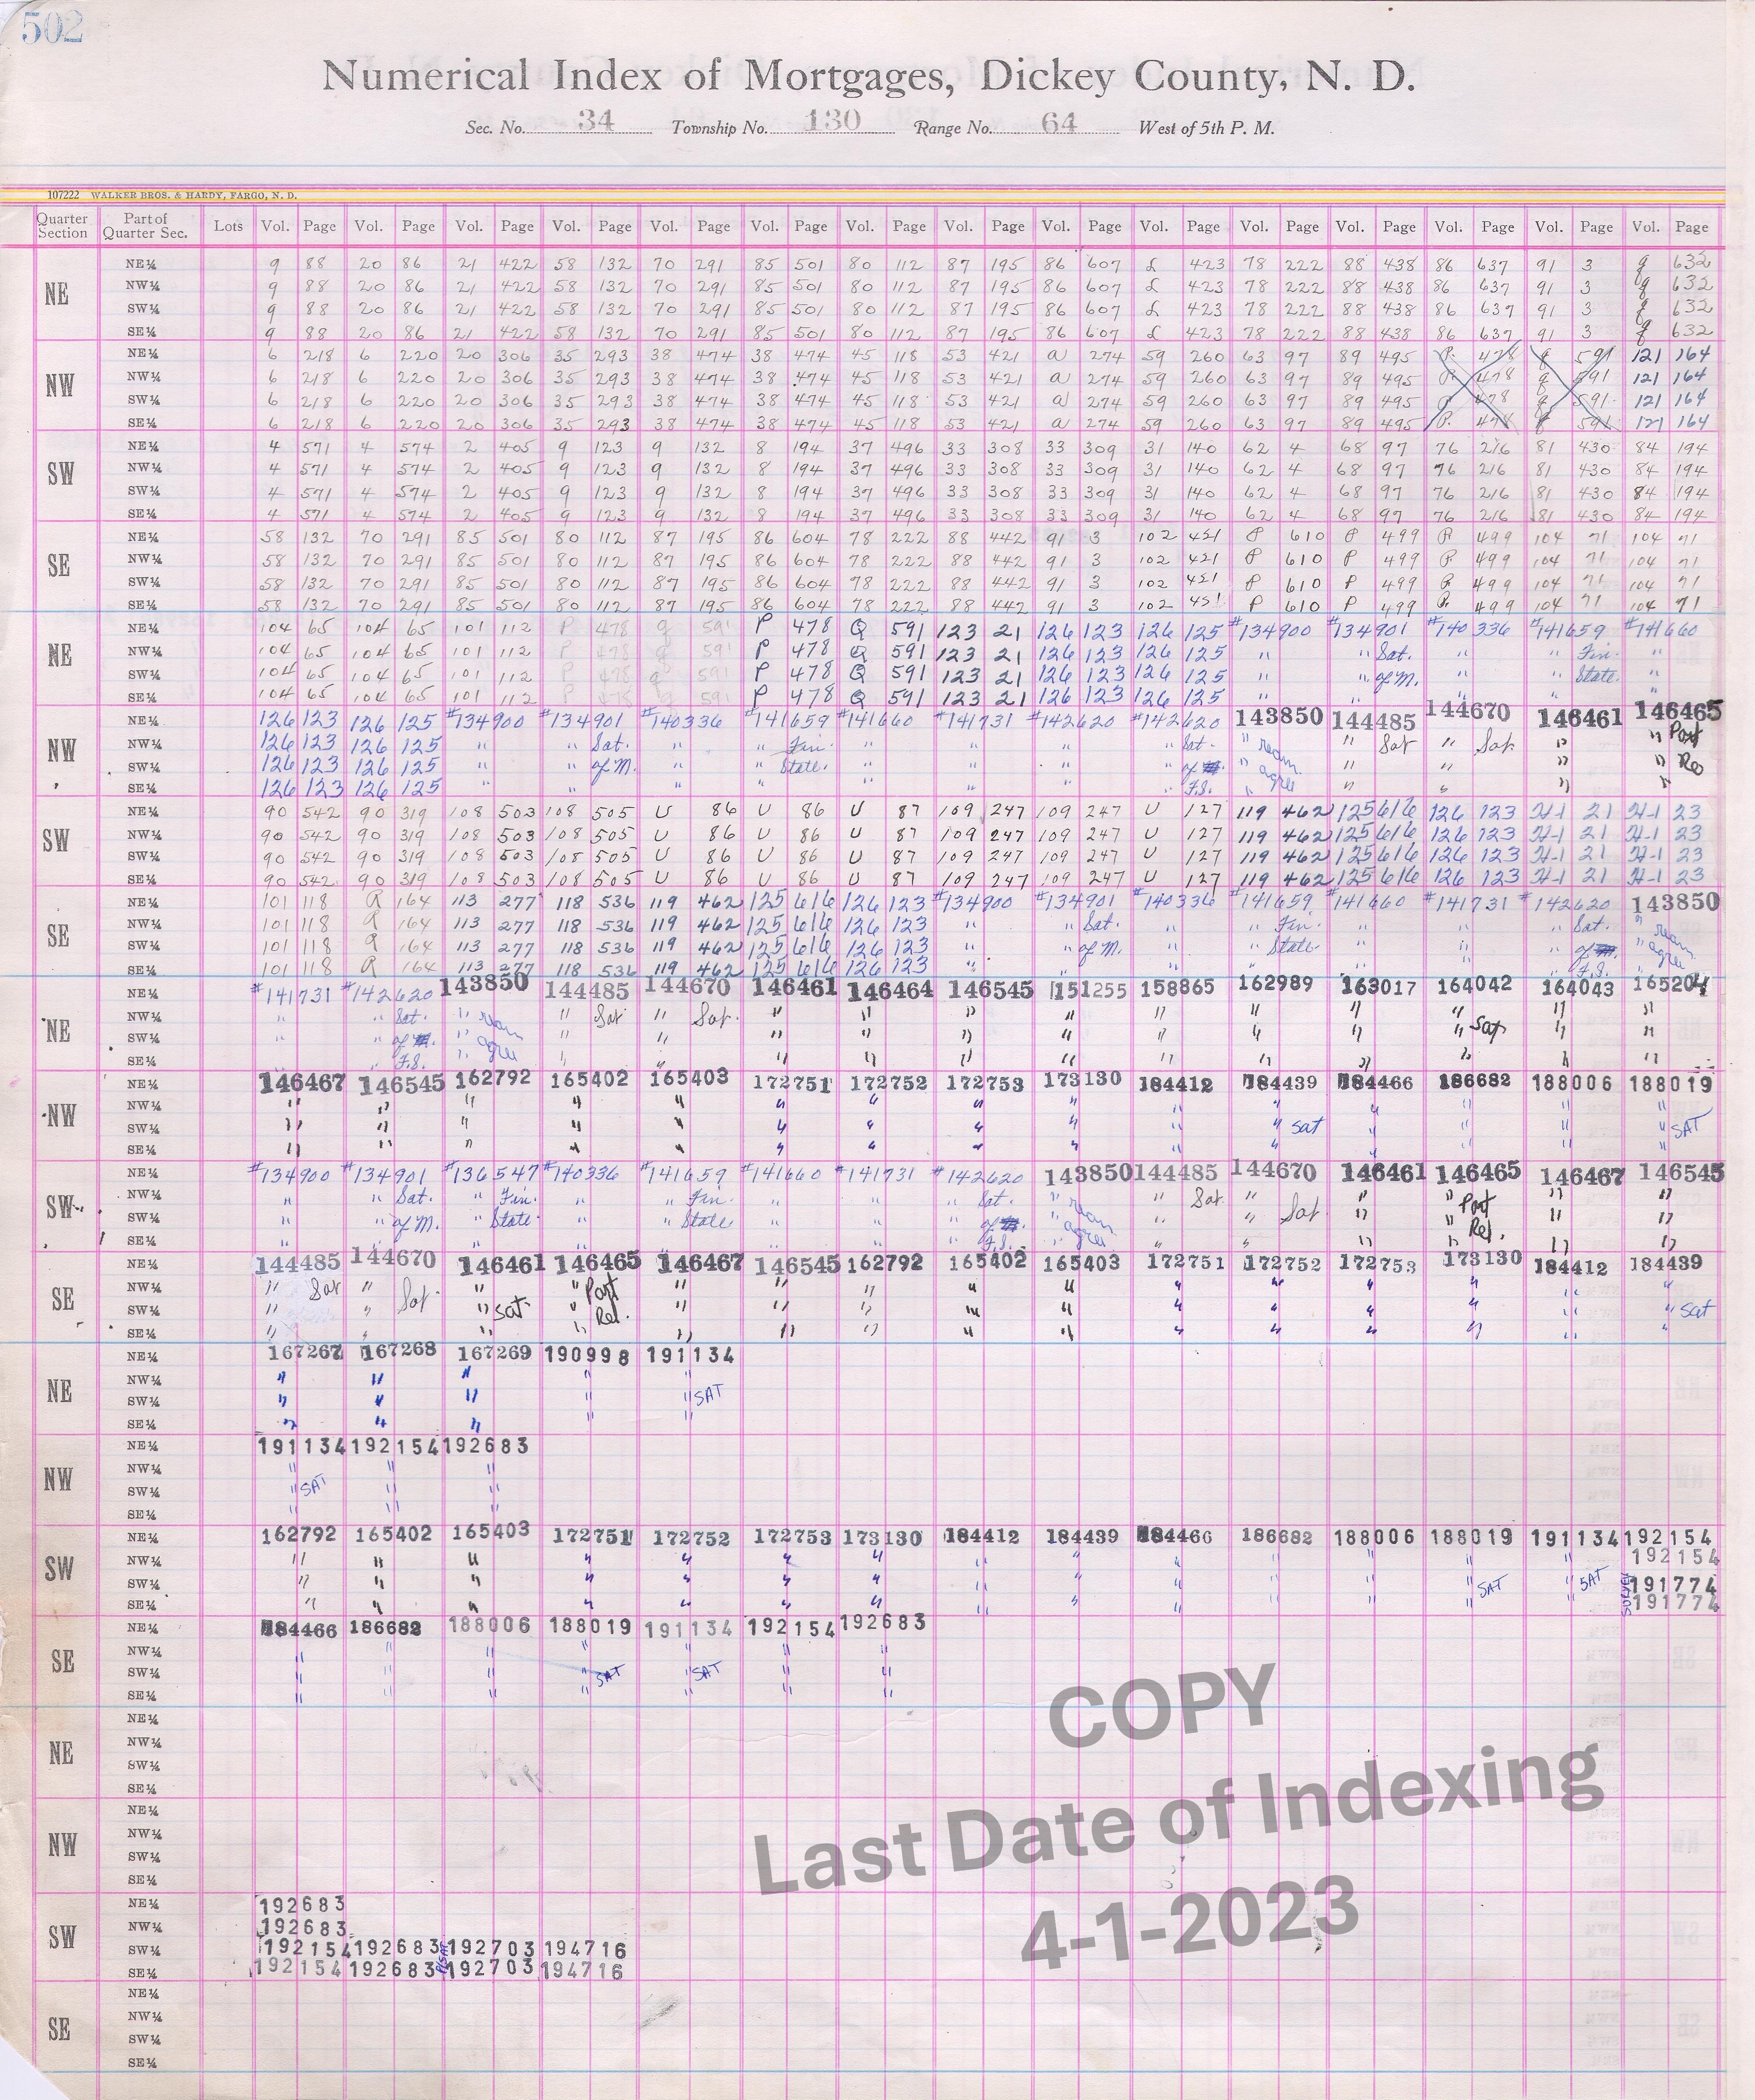 502
Numerical Index of Mortgages, Dickey County, N. D.
Sec. No. 34 Township No. 130 Range No. 64 West of 5th P. M.
107222 WALKER BROS. & HARDY, FARGO, N. D.
Quarter Section Part of Quarter Sec. Lots Vol. Page Vol. Page Vol. Page Vol. Page Vol. Page Vol. Page Vol. Page Vol. Page Vol. Page Vol. Page Vol. Page Vol. Page Vol. Page Vol. Page Vol. Page
NE
NE¼ 9 88 20 86 21 422 58 132 70 291 85 501 80 112 87 195 86 607 L 423 78 222 88 438 86 637 91 3 q 632
NW¼ 9 88 20 86 21 422 58 132 70 291 85 501 80 112 87 195 86 607 L 423 78 222 88 438 86 637 91 3 q 632
SW¼ 9 88 20 86 21 422 58 132 70 291 85 501 80 112 87 195 86 607 L 423 78 222 88 438 86 637 91 3 q 632
SE¼ 9 88 20 86 21 422 58 132 70 291 85 501 80 112 87 195 86 607 L 423 78 222 88 438 86 637 91 3 q 632
NW
NE¼ 6 218 6 220 20 306 35 293 38 474 38 474 45 118 53 421 a 274 59 260 63 97 89 495 P. 478 q 591 121 164
NW¼ 6 218 6 220 20 306 35 293 38 474 38 474 45 118 53 421 a 274 59 260 63 97 89 495 P. 478 q 591 121 164
SW¼ 6 218 6 220 20 306 35 293 38 474 38 474 45 118 53 421 a 274 59 260 63 97 89 495 P 478 q 591 121 164
SE¼ 6 218 6 220 20 306 35 293 38 474 38 474 45 118 53 421 a 274 59 260 63 97 89 495 P. 478 q 591 121 164
SW
NE¼ 4 571 4 574 2 405 9 123 9 132 8 194 37 496 33 308 33 309 31 140 62 4 68 97 76 216 81 430 84 194
NW¼ 4 571 4 574 2 405 9 123 9 132 8 194 37 496 33 308 33 309 31 140 62 4 68 97 76 216 81 430 84 194
SW¼ 4 571 4 574 2 405 9 123 9 132 8 194 37 496 33 308 33 309 31 140 62 4 68 97 76 216 81 430 84 194
SE¼ 4 571 4 574 2 405 9 123 9 132 8 194 37 496 33 308 33 309 31 140 62 4 68 97 76 216 81 430 84 194
SE
NE¼ 58 132 70 291 85 501 80 112 87 195 86 604 78 222 88 442 91 3 102 451 P 610 P 499 P 499 104 71 104 71
NW¼ 58 132 70 291 85 501 80 112 87 195 86 604 78 222 88 442 91 3 102 451 P 610 P 499 P 499 104 71 104 71
SW¼ 58 132 70 291 85 501 80 112 87 195 86 604 78 222 88 442 91 3 102 451 P 610 P 499 P 499 104 71 104 71
SE¼ 58 132 70 291 85 501 80 112 87 195 86 604 78 222 88 442 91 3 102 451 P 610 P 499 P. 499 104 71 104 71
NE
NE¼ 104 65 104 65 101 112 P 478 q 591 P 478 Q 591 123 21 126 123 126 125 #134900 #134901 #140336 #141659 #141660
NW¼ 104 65 104 65 101 112 P 478 q 591 P 478 Q 591 123 21 126 123 126 125 " " Sat. " " Fin. "
SW¼ 104 65 104 65 101 112 P 478 q 591 P 478 Q 591 123 21 126 123 126 125 " " of M. " " State. "
SE¼ 104 65 104 65 101 112 P 478 q 591 P 478 Q 591 123 21 126 123 126 125 " " " " "
NW
NE¼ 126 123 126 125 #134900 #134901 #140336 #141659 #141660 #141731 #142620 #142620 143850 144485 144670 146461 146465
NW¼ 126 123 126 125 " " Sat. " " Fin. " " " " Sat. " ream " Sat " Sat " " Part
SW¼ 126 123 126 125 " " of M. " " State. " " " " of " agre " " " " Rel
SE¼ 126 123 126 125 " " " " " " " " F.S. " " " " "
SW
NE¼ 90 542 90 319 108 503 108 505 U 86 U 86 U 87 109 247 109 247 U 127 119 462 125 616 126 123 H-1 21 H-1 23
NW¼ 90 542 90 319 108 503 108 505 U 86 U 86 U 87 109 247 109 247 U 127 119 462 125 616 126 123 H-1 21 H-1 23
SW¼ 90 542 90 319 108 503 108 505 U 86 U 86 U 87 109 247 109 247 U 127 119 462 125 616 126 123 H-1 21 H-1 23
SE¼ 90 542 90 319 108 503 108 505 U 86 U 86 U 87 109 247 109 247 U 127 119 462 125 616 126 123 H-1 21 H-1 23
SE
NE¼ 101 118 R 164 113 277 118 536 119 462 125 616 126 123 #134900 #134901 #140336 #141659 #141660 #141731 #142620 143850
NW¼ 101 118 R 164 113 277 118 536 119 462 125 616 126 123 " " Sat. " " Fin. " " " Sat. " ream
SW¼ 101 118 R 164 113 277 118 536 119 462 125 616 126 123 " " of M. " " State. " " " of " agre
SE¼ 101 118 R 164 113 277 118 536 119 462 125 616 126 123 " " " " " " " F.S. "
NE
NE¼ #141731 #142620 143850 144485 144670 146461 146464 146545 151255 158865 162989 163017 164042 164043 165204
NW¼ " " Sat. " ream " Sat " Sat. " " " " " " " " " "
SW¼ " " of " agre " " " " " " " " " " Sat " "
SE¼ " " F.S. " " " " " " " " " " " " "
NW
NE¼ 146467 146545 162792 165402 165403 172751 172752 172753 173130 184412 184439 184466 186682 188006 188019
NW¼ " " " " " " " " " " " " " " "
SW¼ " " " " " " " " " " " Sat " " " " SAT
SE¼ " " " " " " " " " " " " " " "
SW
NE¼ #134900 #134901 #136547 #140336 #141659 #141660 #141731 #142620 143850 144485 144670 146461 146465 146467 146545
NW¼ " " Sat. " Fin. " " Fin. " " " Sat. " ream " Sat " " " Part " "
SW¼ " " of M. " State. " " State " " " of " agree " " Sat " " Rel. " "
SE¼ " " " " " " " " F.S. " " " " " " "
SE
NE¼ 144485 144670 146461 146465 146467 146545 162792 165402 165403 172751 172752 172753 173130 184412 184439
NW¼ " Sat " " " Part " " " " " " " " " " "
SW¼ " " Sat " Sat. " Rel. " " " " " " " " " " " Sat
SE¼ " " " " " " " " " " " " " " "
NE
NE¼ 167267 167268 167269 190998 191134
NW¼ " " " " "
SW¼ " " " " " SAT
SE¼ " " " " "
NW
NE¼ 191134 192154 192683
NW¼ " " "
SW¼ " SAT " "
SE¼ " " "
SW
NE¼ 162792 165402 165403 172751 172752 172753 173130 184412 184439 184466 186682 188006 188019 191134 192154
NW¼ " " " " " " " " " " " " " " 192154
SW¼ " " " " " " " " " " " " " SAT " SAT 191774
SE¼ " " " " " " " " " " " " " " 191774
SE
NE¼ 184466 186682 188006 188019 191134 192154 192683
NW¼ " " " " " " "
SW¼ " " " " SAT " SAT " "
SE¼ " " " " " " "
NE
NE¼
NW¼
SW¼
SE¼
NW
NE¼
NW¼
SW¼
SE¼
SW
NE¼ 192683
NW¼ 192683
SW¼ 192154 192683 192703 194716
SE¼ 192154 192683 192703 194716
SE
NE¼
NW¼
SW¼
SE¼
COPY
Last Date of Indexing
4-1-2023